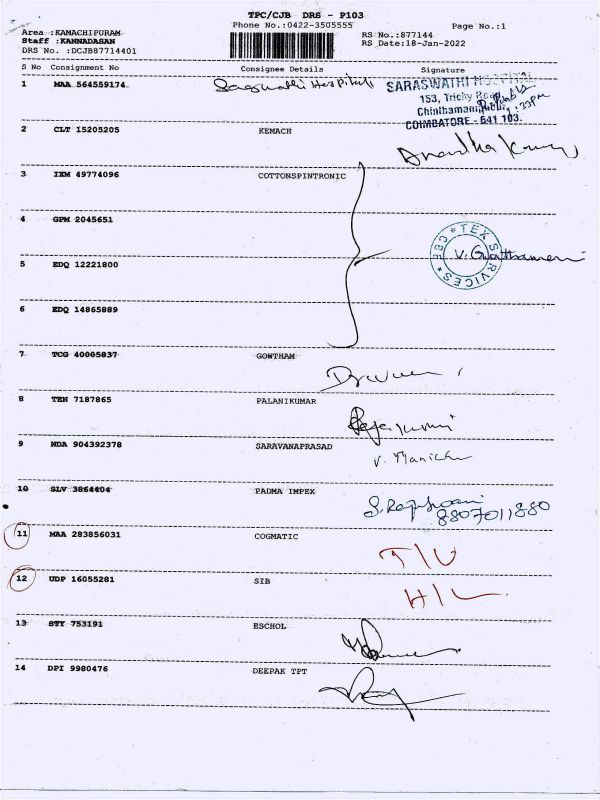 TPC/CJB DRS - P103
Phone No.:0422-3505555
Page No.:1
Area :KAMACHIPURAM
Staff :KANNADASAN
DRS No. :DCJB87714401
RS No.:877144
RS Date:18-Jan-2022
S No Consignment No Consignee Details Signature
1 MAA 564559174 Saraswathi Hospital
SARASWATHI HOSPITAL
153, Trichy Road,
Chinthamani
COIMBATORE - 641 103.
2 CLT 15205205 KEMACH
3 IXM 49774096 COTTONSPINTRONIC
4 GPM 2045651
TEX SERVICES
5 EDQ 12221800
6 EDQ 14865889
7 TCG 40005837 GOWTHAM
8 TEN 7187865 PALANIKUMAR
9 NDA 904392378 SARAVANAPRASAD
V. Manickam
10 SLV 3864404 PADMA IMPEX
8807011880
11 MAA 283856031 COGMATIC T/U
12 UDP 16055281 SIB H/L
13 STY 753191 ESCHOL
14 DPI 9980476 DEEPAK TPT